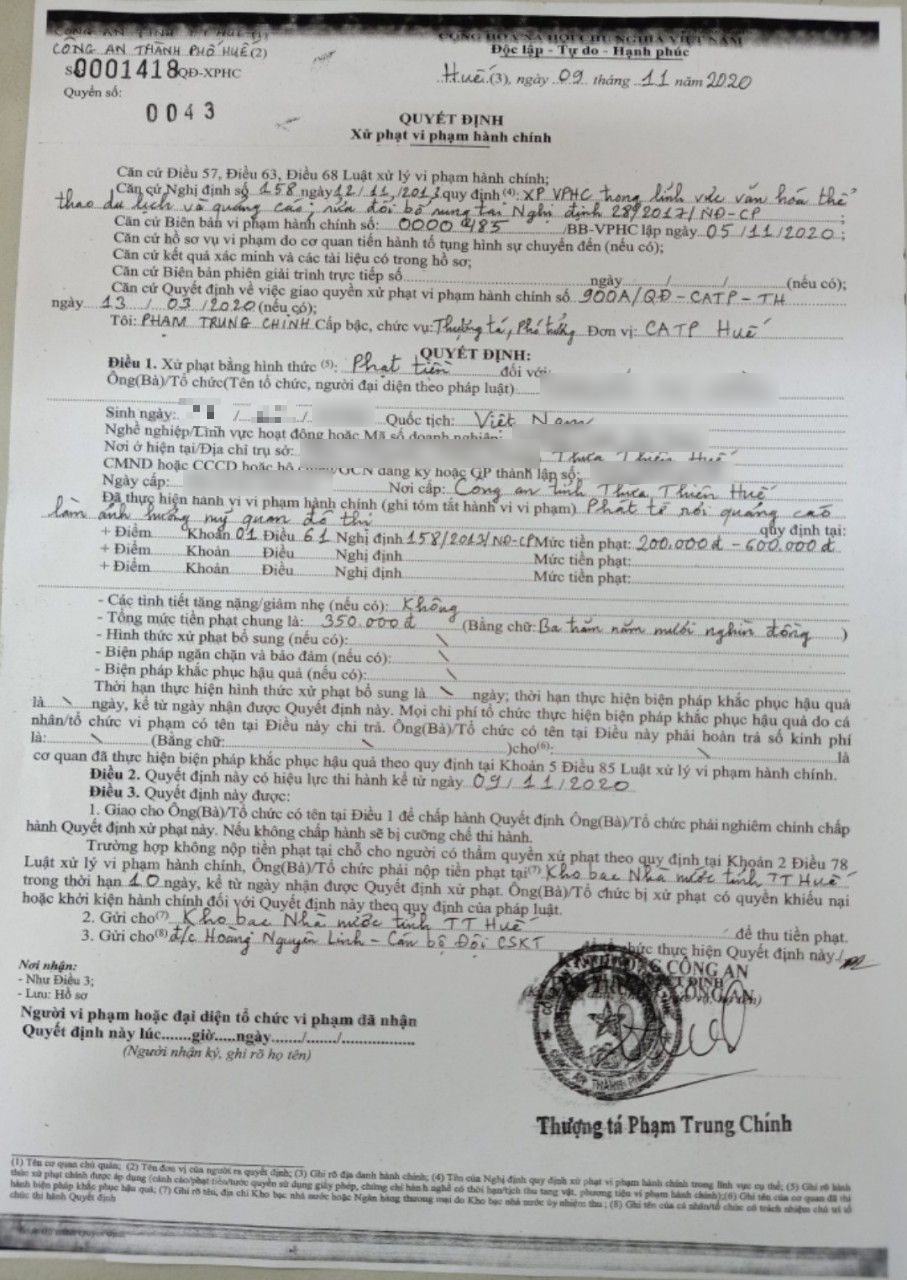 CÔNG AN TỈNH TT HUẾ (1)
CÔNG AN THÀNH PHỐ HUẾ(2)
CỘNG HÒA XÃ HỘI CHỦ NGHĨA VIỆT NAM
Độc lập - Tự do - Hạnh phúc
Số 0001418 QĐ-XPHC
Huế (3), ngày 09 tháng 11 năm 2020
Quyển số:
0043
QUYẾT ĐỊNH
Xử phạt vi phạm hành chính
Căn cứ Điều 57, Điều 63, Điều 68 Luật xử lý vi phạm hành chính;
Căn cứ Nghị định số 158 ngày 12/11/2013 quy định (4): XP VPHC trong lĩnh vực văn hóa thể
thao du lịch và quảng cáo; sửa đổi bổ sung tại Nghị định 28/2017/NĐ-CP ;
Căn cứ Biên bản vi phạm hành chính số: 0000485 /BB-VPHC lập ngày 05/11/2020;
Căn cứ hồ sơ vụ vi phạm do cơ quan tiến hành tố tụng hình sự chuyển đến (nếu có);
Căn cứ kết quả xác minh và các tài liệu có trong hồ sơ;
Căn cứ Biên bản phiên giải trình trực tiếp số ngày / / (nếu có);
Căn cứ Quyết định về việc giao quyền xử phạt vi phạm hành chính số 900A/QĐ-CATP-TH
ngày 13 / 03 /2020 (nếu có);
Tôi: PHẠM TRUNG CHÍNH Cấp bậc, chức vụ: Thượng tá, Phó trưởng Đơn vị: CATP Huế
QUYẾT ĐỊNH:
Điều 1. Xử phạt bằng hình thức (5): Phạt tiền đối với:
Ông(Bà)/Tổ chức(Tên tổ chức, người đại diện theo pháp luật)
Sinh ngày: / / Quốc tịch: Việt Nam
Nghề nghiệp/Lĩnh vực hoạt động hoặc Mã số doanh nghiệp:
Nơi ở hiện tại/Địa chỉ trụ sở: Thừa Thiên Huế
CMND hoặc CCCD hoặc hộ chiếu/GCN đăng ký hoặc GP thành lập số:
Ngày cấp: Nơi cấp: Công an tỉnh Thừa Thiên Huế
Đã thực hiện hành vi vi phạm hành chính (ghi tóm tắt hành vi vi phạm) Phát tờ rơi quảng cáo
làm ảnh hưởng mỹ quan đô thị quy định tại:
+ Điểm Khoản 01 Điều 61 Nghị định 158/2013/NĐ-CP Mức tiền phạt: 200.000đ - 600.000đ
+ Điểm Khoản Điều Nghị định Mức tiền phạt:
+ Điểm Khoản Điều Nghị định Mức tiền phạt:
- Các tình tiết tăng nặng/giảm nhẹ (nếu có): Không
- Tổng mức tiền phạt chung là: 350.000đ (Bằng chữ: Ba trăm năm mươi nghìn đồng )
- Hình thức xử phạt bổ sung (nếu có): \
- Biện pháp ngăn chặn và bảo đảm (nếu có): \
- Biện pháp khắc phục hậu quả (nếu có): \
Thời hạn thực hiện hình thức xử phạt bổ sung là \ ngày; thời hạn thực hiện biện pháp khắc phục hậu quả
là \ ngày, kể từ ngày nhận được Quyết định này. Mọi chi phí tổ chức thực hiện biện pháp khắc phục hậu quả do cá
nhân/tổ chức vi phạm có tên tại Điều này chi trả. Ông(Bà)/Tổ chức có tên tại Điều này phải hoàn trả số kinh phí
là: \ (Bằng chữ: \ )cho(6): \ là
cơ quan đã thực hiện biện pháp khắc phục hậu quả theo quy định tại Khoản 5 Điều 85 Luật xử lý vi phạm hành chính.
Điều 2. Quyết định này có hiệu lực thi hành kể từ ngày 09/11/2020
Điều 3. Quyết định này được:
1. Giao cho Ông(Bà)/Tổ chức có tên tại Điều 1 để chấp hành Quyết định. Ông(Bà)/Tổ chức phải nghiêm chỉnh chấp
hành Quyết định xử phạt này. Nếu không chấp hành sẽ bị cưỡng chế thi hành.
Trường hợp không nộp tiền phạt tại chỗ cho người có thẩm quyền xử phạt theo quy định tại Khoản 2 Điều 78
Luật xử lý vi phạm hành chính, Ông(Bà)/Tổ chức phải nộp tiền phạt tại(7) Kho bạc Nhà nước tỉnh TT Huế
trong thời hạn 10 ngày, kể từ ngày nhận được Quyết định xử phạt. Ông(Bà)/Tổ chức bị xử phạt có quyền khiếu nại
hoặc khởi kiện hành chính đối với Quyết định này theo quy định của pháp luật.
2. Gửi cho(7) Kho bạc Nhà nước tỉnh TT Huế để thu tiền phạt.
3. Gửi cho(8) đ/c Hoàng Nguyên Linh - Cán bộ Đội CSKT để tổ chức thực hiện Quyết định này./.
Nơi nhận:
- Như Điều 3;
- Lưu: Hồ sơ
Người vi phạm hoặc đại diện tổ chức vi phạm đã nhận
Quyết định này lúc......giờ.....ngày......./......./...............
(Người nhận ký, ghi rõ họ tên)
CÔNG AN
CÔNG AN
Thượng tá Phạm Trung Chính
(1) Tên cơ quan chủ quản; (2) Tên đơn vị của người ra quyết định; (3) Ghi rõ địa danh hành chính; (4) Tên của Nghị định quy định xử phạt vi phạm hành chính trong lĩnh vực cụ thể; (5) Ghi rõ hình
thức xử phạt chính được áp dụng (cảnh cáo/phạt tiền/tước quyền sử dụng giấy phép, chứng chỉ hành nghề có thời hạn/tịch thu tang vật, phương tiện vi phạm hành chính);(6) Ghi tên của cơ quan đã thi
hành biện pháp khắc phục hậu quả; (7) Ghi rõ tên, địa chỉ Kho bạc nhà nước hoặc Ngân hàng thương mại do Kho bạc nhà nước ủy nhiệm thu ; (8) Ghi tên của cá nhân/tổ chức có trách nhiệm chủ trì tổ
chức thi hành Quyết định